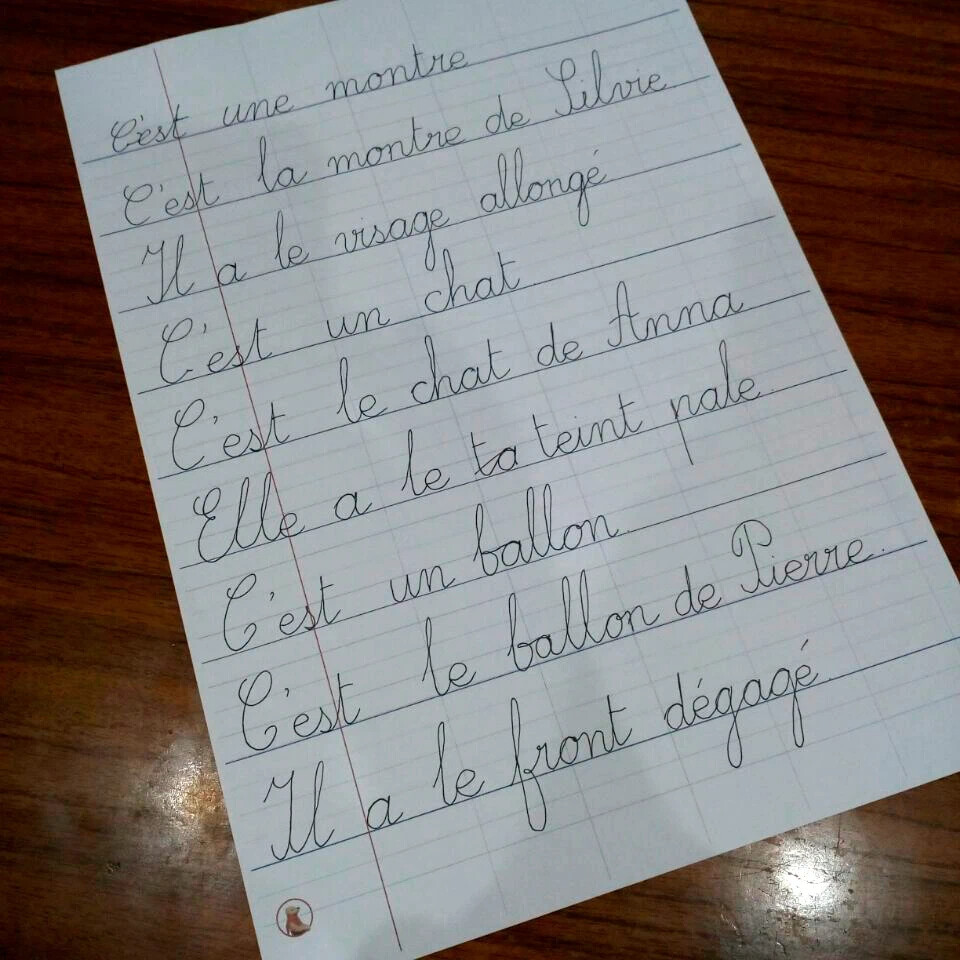 C'est une montre
C'est la montre de Silvie.
Il a le visage allongé
C'est un chat
C'est le chat de Anna
Elle a le ta teint pale.
C'est un ballon.
C'est le ballon de Pierre.
Il a le front dégagé.